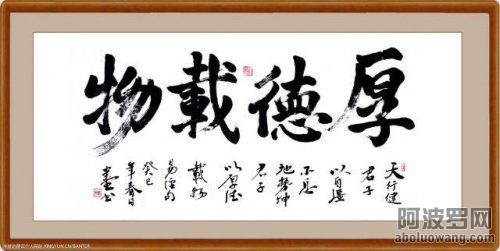 厚德載物
天行健
君子
以自强
不息
地勢坤
君子
以厚德
載物
易經句
癸巳
年春日
阿波罗网
aboluowang.com